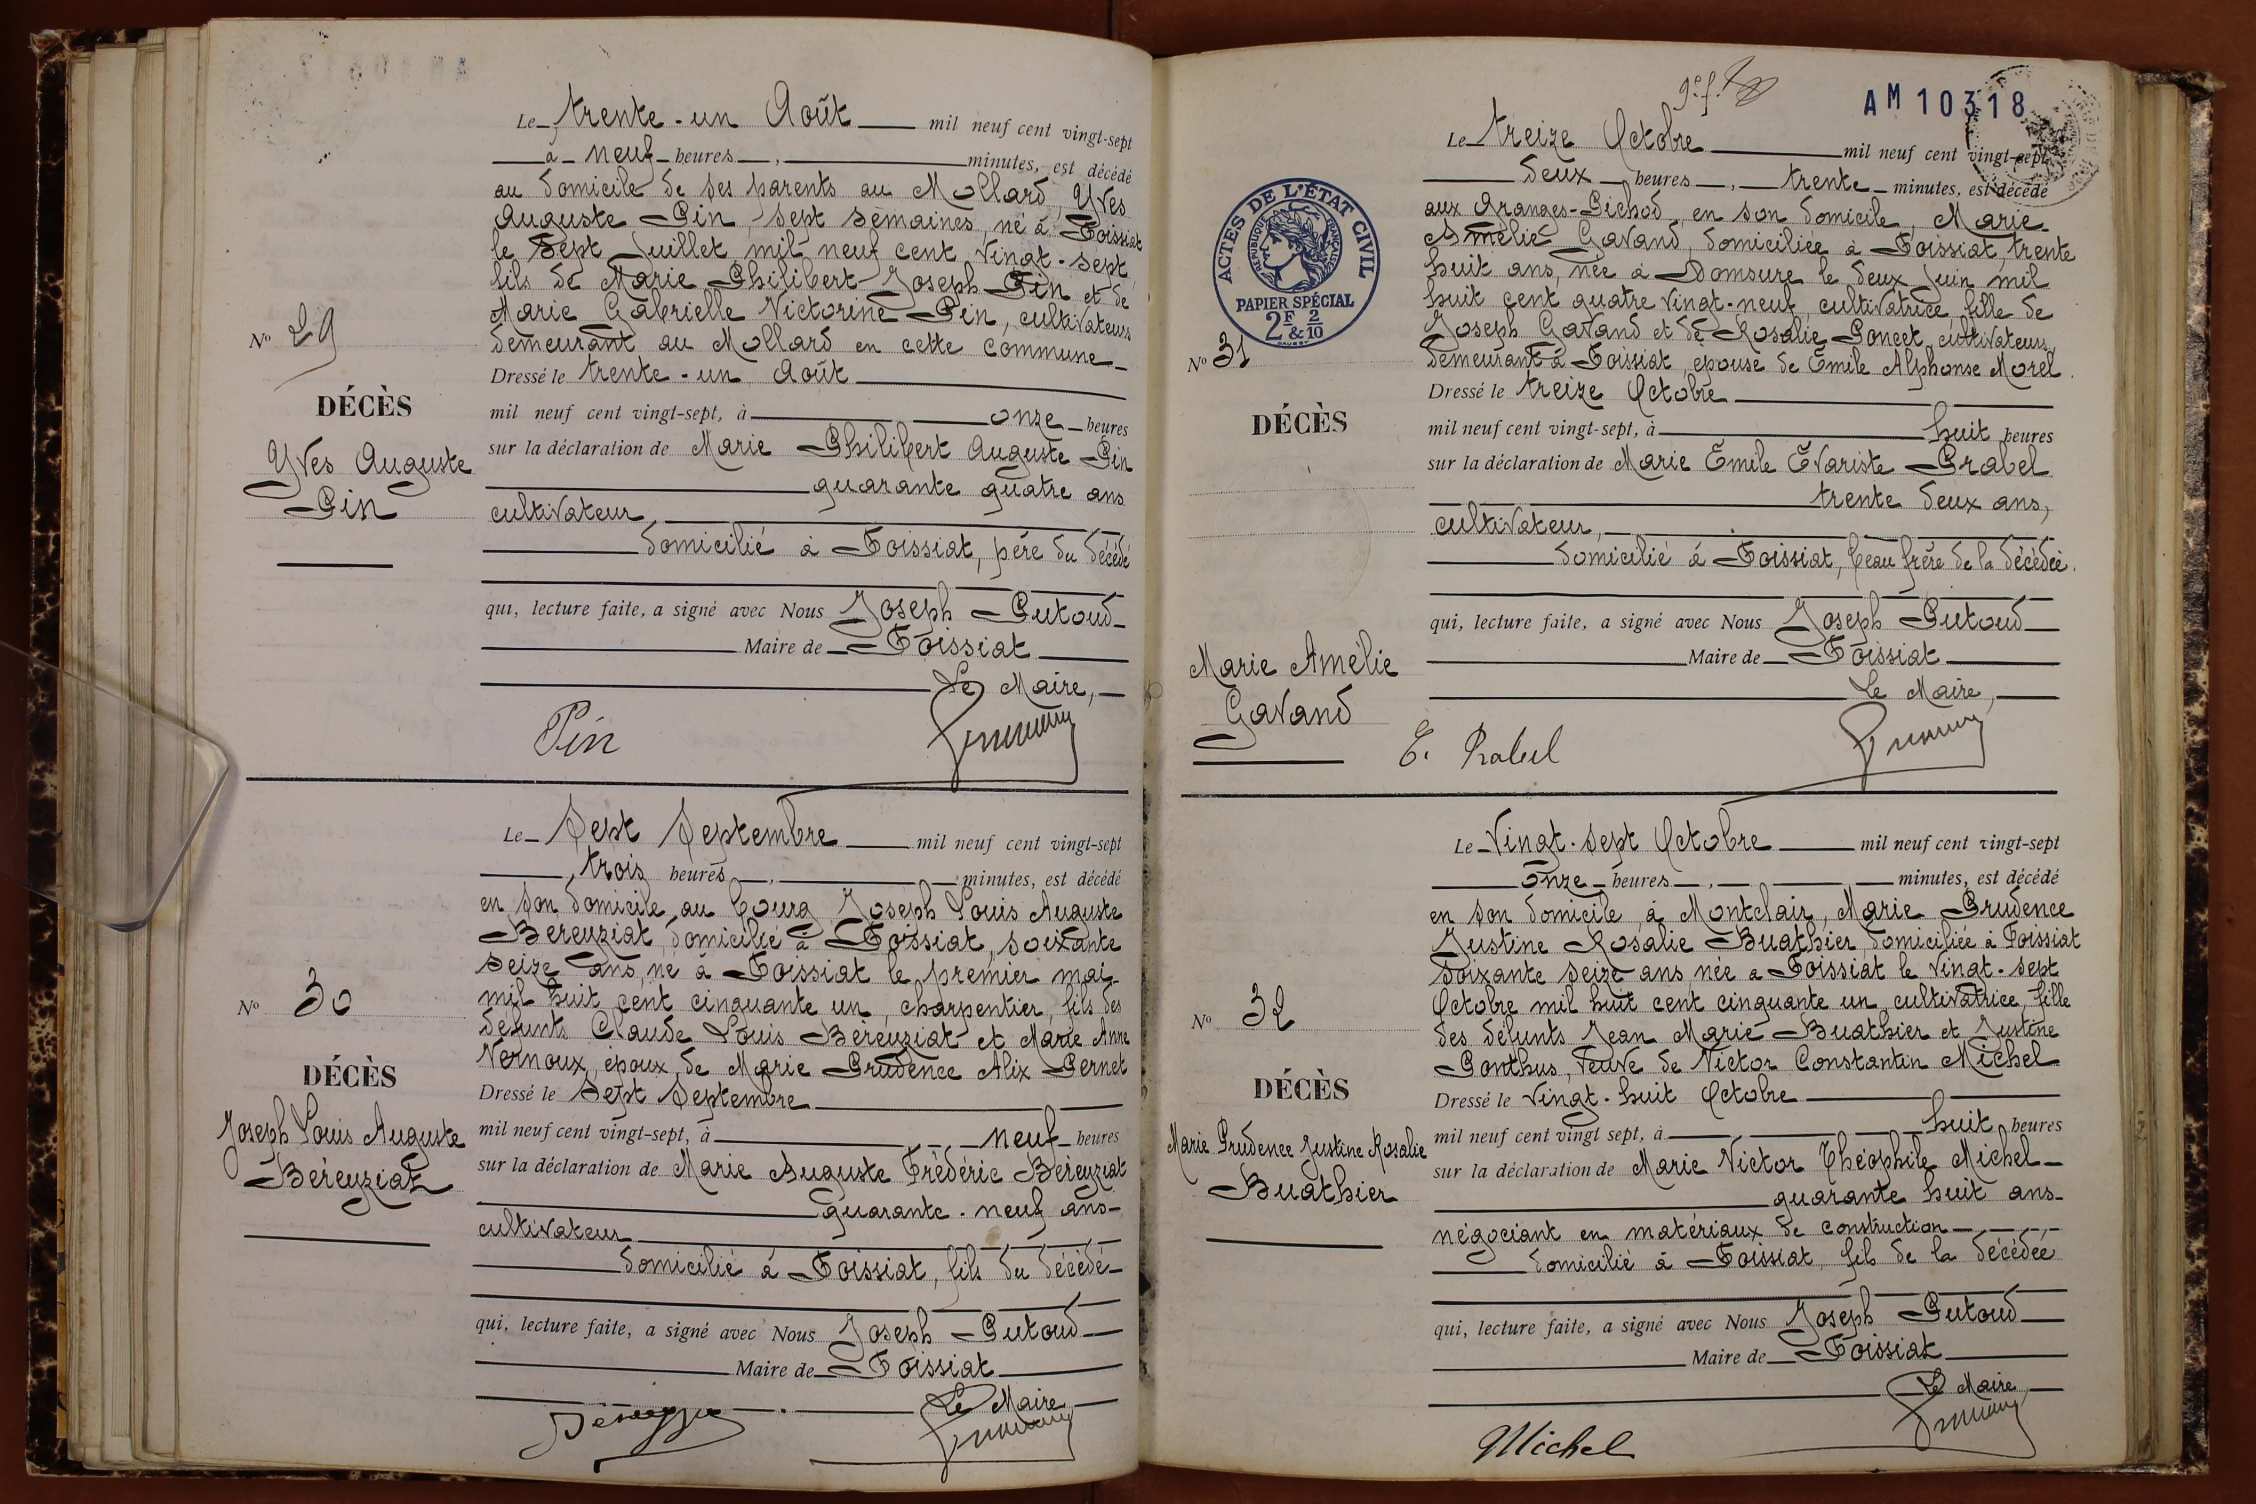 Le trente-un Août mil neuf cent vingt-sept
à neuf heures, minutes, est décédé
au domicile de ses parents au Mollard, Yves
Auguste Pin, sept semaines, né à Foissiat
le Sept Juillet mil neuf cent vingt-sept
fils de Marie Philibert Joseph Pin et de
Marie Gabrielle Victorine Pin, cultivateurs
demeurant au Mollard en cette commune
No 29
Dressé le trente-un Août
DÉCÈS
mil neuf cent vingt-sept, à onze heures
Yves Auguste
Pin
sur la déclaration de Marie Philibert Auguste Pin
quarante quatre ans
cultivateur,
domicilié à Foissiat, père du décédé
qui, lecture faite, a signé avec Nous Joseph Putoud
Maire de Foissiat
Le Maire,
Pin
Le Sept Septembre mil neuf cent vingt-sept
trois heures, minutes, est décédé
en son domicile au bourg Joseph Louis Auguste
Béreyziat, domicilié à Foissiat, soixante
seize ans, né à Foissiat le premier mai
mil huit cent cinquante un, charpentier, fils des
défunts Claude Louis Béreyziat et Marie Anne
Vernoux, époux de Marie Prudence Alix Pernet
No 30
DÉCÈS
Dressé le Sept Septembre
Joseph Louis Auguste
Béreyziat
mil neuf cent vingt-sept, à neuf heures
sur la déclaration de Marie Auguste Frédéric Béreyziat
quarante-neuf ans
cultivateur
domicilié à Foissiat, fils du décédé
qui, lecture faite, a signé avec Nous Joseph Putoud
Maire de Foissiat
Le Maire
AM 10318
Le treize Octobre mil neuf cent vingt-sept
deux heures, trente minutes, est décédé
aux Granges-Pichod, en son domicile, Marie
Amélie Gavand, domiciliée à Foissiat, trente
huit ans, née à Domsure le deux Juin mil
huit cent quatre vingt-neuf, cultivatrice, fille de
Joseph Gavand et de Rosalie Poncet, cultivateurs
demeurant à Foissiat, épouse de Emile Alphonse Morel.
ACTES DE L'ÉTAT CIVIL
RÉPUBLIQUE FRANÇAISE
PAPIER SPÉCIAL
2F & 2/10
No 31
Dressé le treize Octobre
DÉCÈS
mil neuf cent vingt-sept, à huit heures
sur la déclaration de Marie Emile Evariste Prabel
trente deux ans,
cultivateur,
domicilié à Foissiat, beau frère de la décédée.
qui, lecture faite, a signé avec Nous Joseph Putoud
Maire de Foissiat
Marie Amélie
Gavand
Le Maire,
E. Prabel
Le Vingt-sept Octobre mil neuf cent vingt-sept
onze heures, minutes, est décédé
en son domicile à Montclair, Marie Prudence
Justine Rosalie Buathier domiciliée à Foissiat
soixante seize ans, née à Foissiat le vingt-sept
Octobre mil huit cent cinquante un, cultivatrice, fille
des défunts Jean Marie Buathier et Justine
Ponthus, veuve de Victor Constantin Michel
No 32
DÉCÈS
Dressé le vingt-huit Octobre
Marie Prudence Justine Rosalie
Buathier
mil neuf cent vingt sept, à huit heures
sur la déclaration de Marie Victor Théophile Michel
quarante huit ans
négociant en matériaux de construction
domicilié à Foissiat, fils de la décédée
qui, lecture faite, a signé avec Nous Joseph Putoud
Maire de Foissiat
Le Maire
Michel